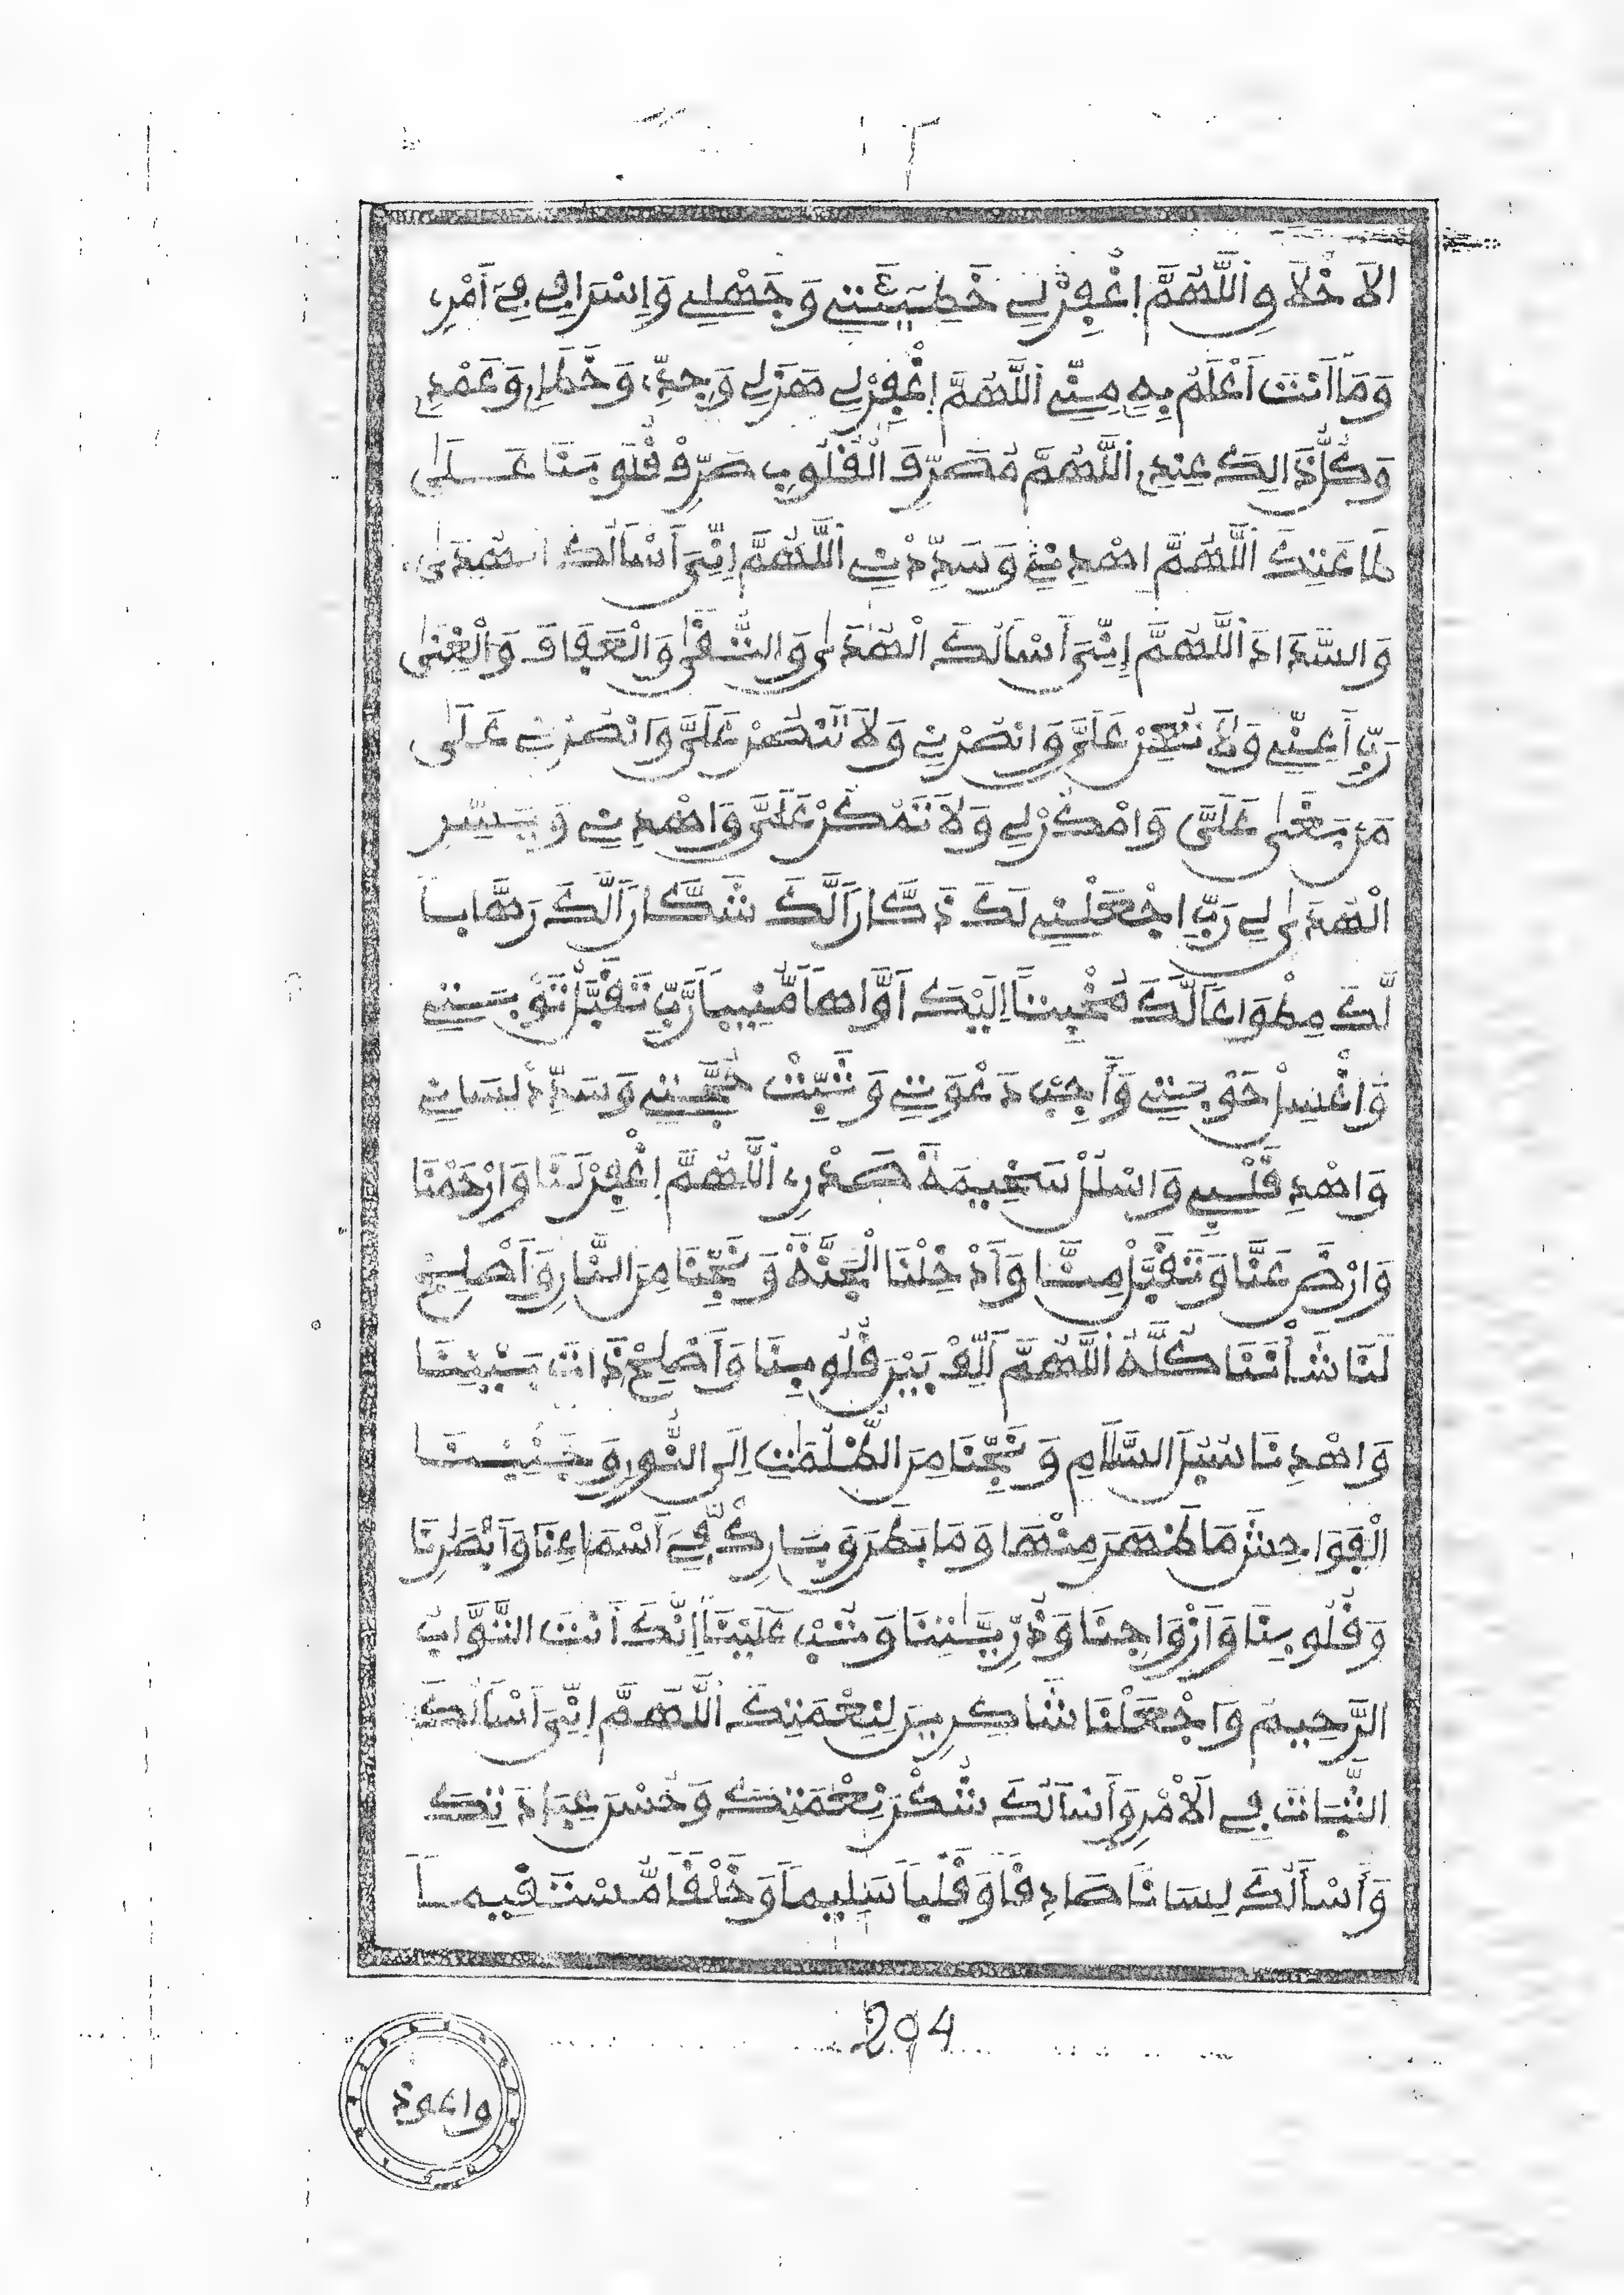 الَاخْلَاقِ اَللَّهُمَّ اِغْفِرْ لِي خَطِيٓـَٔتِي وَجَهْلِي وَإِسْرَافِي فِيٓ أَمْرِي
وَمَآ أَنتَ أَعْلَمُ بِهِ مِنِّي اَللَّهُمَّ اِغْفِرْ لِي هَزْلِي وَجِدِّي وَخَطَإِي وَعَمْدِي
وَكُلُّ ذَالِكَ عِندِي اَللَّهُمَّ مُصَرِّفَ الْقُلُوبِ صَرِّفْ قُلُوبَنَا عَلَىٰ
طَاعَتِكَ اَللَّهُمَّ اهْدِنِي وَسَدِّدْنِي اَللَّهُمَّ إِنِّيٓ أَسْأَلُكَ الْهُدَىٰ
وَالسَّدَادَ اَللَّهُمَّ إِنِّيٓ أَسْأَلُكَ الْهُدَىٰ وَالتُّقَىٰ وَالْعَفَافَ وَالْغِنَىٰ
رَبِّ أَعِنِّي وَلَا تُعِنْ عَلَيَّ وَانصُرْنِي وَلَا تَنصُرْ عَلَيَّ وَانْصُرْنِي عَلَىٰ
مَن بَغَىٰ عَلَيَّ وَامْكُرْ لِي وَلَا تَمْكُرْ عَلَيَّ وَاهْدِنِي وَيَسِّرِ
الْهُدَىٰ لِي رَبِّ اجْعَلْنِي لَكَ ذَكَّارًا لَّكَ شَكَّارًا لَّكَ رَهَّابًا
لَّكَ مِطْوَاعًا لَّكَ مُخْبِتًا إِلَيْكَ أَوَّاهًا مُّنِيبًا رَّبِّ تَقَبَّلْ تَوْبَتِي
وَاغْسِلْ حَوْبَتِي وَأَجِبْ دَعْوَتِي وَثَبِّتْ حُجَّتِي وَسَدِّدْ لِسَانِي
وَاهْدِ قَلْبِي وَاسْلُلْ سَخِيمَةَ صَدْرِي اَللَّهُمَّ اِغْفِرْ لَنَا وَارْحَمْنَا
وَارْضَ عَنَّا وَتَقَبَّلْ مِنَّا وَأَدْخِلْنَا الْجَنَّةَ وَنَجِّنَا مِنَ النَّارِ وَأَصْلِحْ
لَنَا شَأْنَنَا كُلَّهُ اَللَّهُمَّ أَلِّفْ بَيْنَ قُلُوبِنَا وَأَصْلِحْ ذَاتَ بَيْنِنَا
وَاهْدِنَا سُبُلَ السَّلَامِ وَنَجِّنَا مِنَ الظُّلُمَٰتِ إِلَى النُّورِ وَجَنِّبْنَا
الْفَوَاحِشَ مَا ظَهَرَ مِنْهَا وَمَا بَطَنَ وَبَارِكْ فِيٓ أَسْمَاعِنَا وَأَبْصَٰرِنَا
وَقُلُوبِنَا وَأَزْوَاجِنَا وَذُرِّيَّٰتِنَا وَتُبْ عَلَيْنَآ إِنَّكَ أَنتَ التَّوَّابُ
الرَّحِيمُ وَاجْعَلْنَا شَاكِرِينَ لِنِعْمَتِكَ اَللَّهُمَّ إِنِّيٓ أَسْأَلُكَ
الثَّبَاتَ فِي الَامْرِ وَأَسْأَلُكَ شُكْرَ نِعْمَتِكَ وَحُسْنَ عِبَادَتِكَ
وَأَسْأَلُكَ لِسَانًا صَادِقًا وَقَلْبًا سَلِيمًا وَخُلُقًا مُّسْتَقِيمًا
204
واعوذ